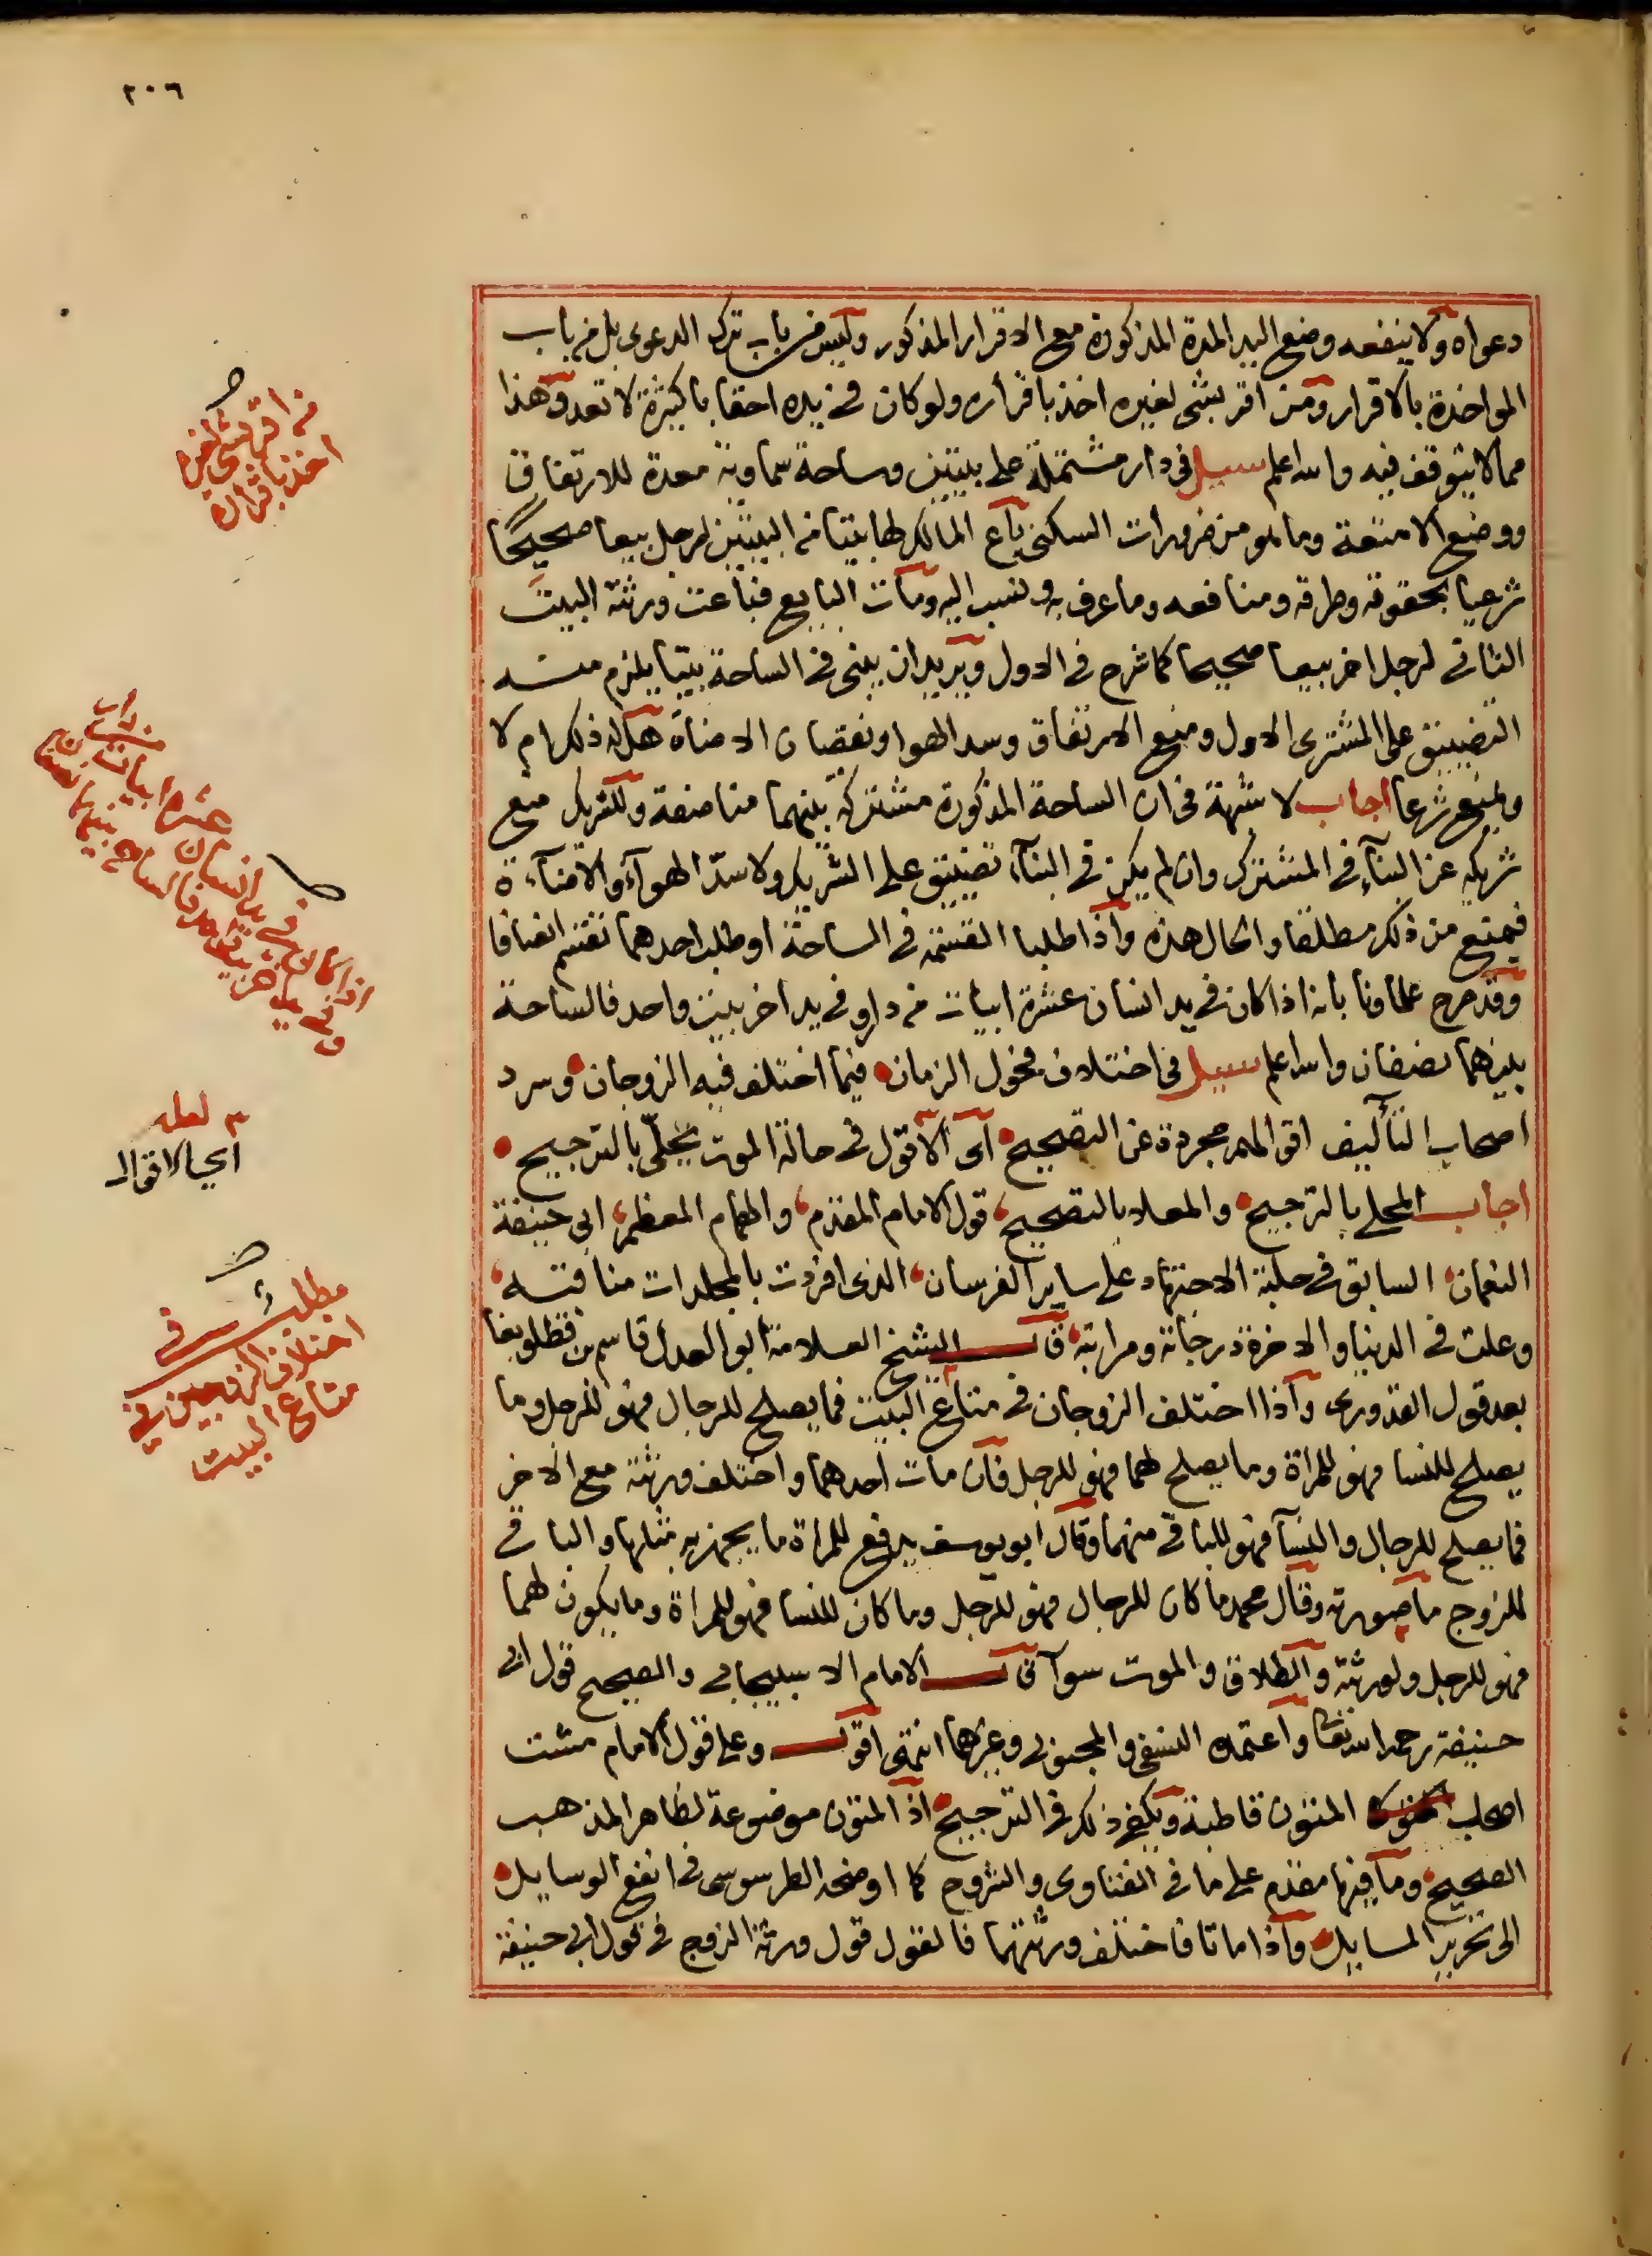 ٢٠٦
دعواه ولا ينفعه وضع اليد المدة المذكورة مع الاقرار المذكور وليس من باب ترك الدعوى بل من باب
المواخذة بالاقرار ومن اقر بشى لغيره اخذ باقراره ولو كان في يده احقابا كثيرة لا تعد وهذا
مما لا يتوقف فيه والله اعلم سيل فى دار مشتملة على بيتين وساحة سماوية معدة للارتفاق
ووضع الامتعة وما هو من ضرورات السكنى باع المالك لها بيتا من البيتين لرجل بيعا صحيحًا
شرعيا بحقوقه وطرقه ومنافعه وما عرف به ونسب اليه ومات البايع فباعت ورثته البيت
الثانى لرجل اخر بيعا صحيحا كما شرح فى الاول ويريد ان يبنى فى الساحة بيتا يلزم منه
التضييق على المشترى الاول ومنع الارتفاق وسد الهوا ونقصان الاضاة هل له ذلك ام لا
ويمنع شرعا اجاب لا شبهة فى ان الساحة المذكورة مشتركة بينهما مناصفة وللشريك منع
شريكه عن البنآء فى المشترك وان لم يكن فى البنآء تضييق على الشريك ولا سدّ الهوآء والاضآءة
فيمتنع من ذلك مطلقا والحال هذه واذا طلبا القسمة فى الساحة او طلب احدهما تقسم انصافا
وقد صرح علماونا بانه اذا كان فى يد انسان عشرة ابيات من دار وفى يد اخر بيت واحد فالساحة
بينهما نصفان والله اعلم سيل فى اختلاف فحول الزمان فيما اختلف فيه الزوجان وسرد
اصحاب التأليف اقوالهم مجردة عن التصحيح اى الاقول فى حالة الموت يحلّى بالترجيح
اجاب المحلى بالترجيح والمعلا بالتصحيح قول الامام المقدم والهمام المعظم ابى حنيفة
النعمان السابق فى حلبة الاجتهاد على ساير الفرسان الذى افردت بالمجلدات مناقبه
وعلت فى الدنيا والاخرة درجاته ومراتبه قال الشيخ العلامة ابو العدل قاسم بن قطلوبغا
بعد قول القدورى واذا اختلف الزوجان فى متاع البيت فما يصلح للرجال فهو للرجل وما
يصلح للنسا فهو للمراة وما يصلح لهما فهو للرجل فان مات احدهما واختلف ورثته مع الاخر
فما يصلح للرجال والنسآ فهو للباقى منهما وقال ابو يوسف يدفع للمراة ما يجهز به مثلها والباقى
للزوج ما صورته وقال محمد ما كان للرجال فهو للرجل وما كان للنسا فهو للمراة وما يكون لهما
فهو للرجل ولورثته والطلاق والموت سوآ قال الامام الاسبيجابى والصحيح قول ابى
حنيفة رحمه الله تعا واعتمده النسفى والمحبوبى وغيرهما انتهى اقول وعلى قول الامام مشت
اصحاب المتون قاطبة ويكفى ذلك فى الترجيح اذ المتون موضوعة لظاهر المذهب
الصحيح وما فيها مقدم على ما فى الفتاوى والشروح كما اوضحه الطرسوسى فى انفع الوسايل
الى تحرير المسايل واذا ماتا فاختلف ورثتهما فالقول قول ورثة الزوج فى قول ابى حنيفة
من اقر بشى لغيره
اخذ باقراره
اذا كان فى يد انسان عشرة ابيات من دار
وفى يد اخر بيت واحد فالساحة بينهما نصفان
لعله
اى الاقوال
مطلب فى
اختلاف الزوجين فى
متاع البيت